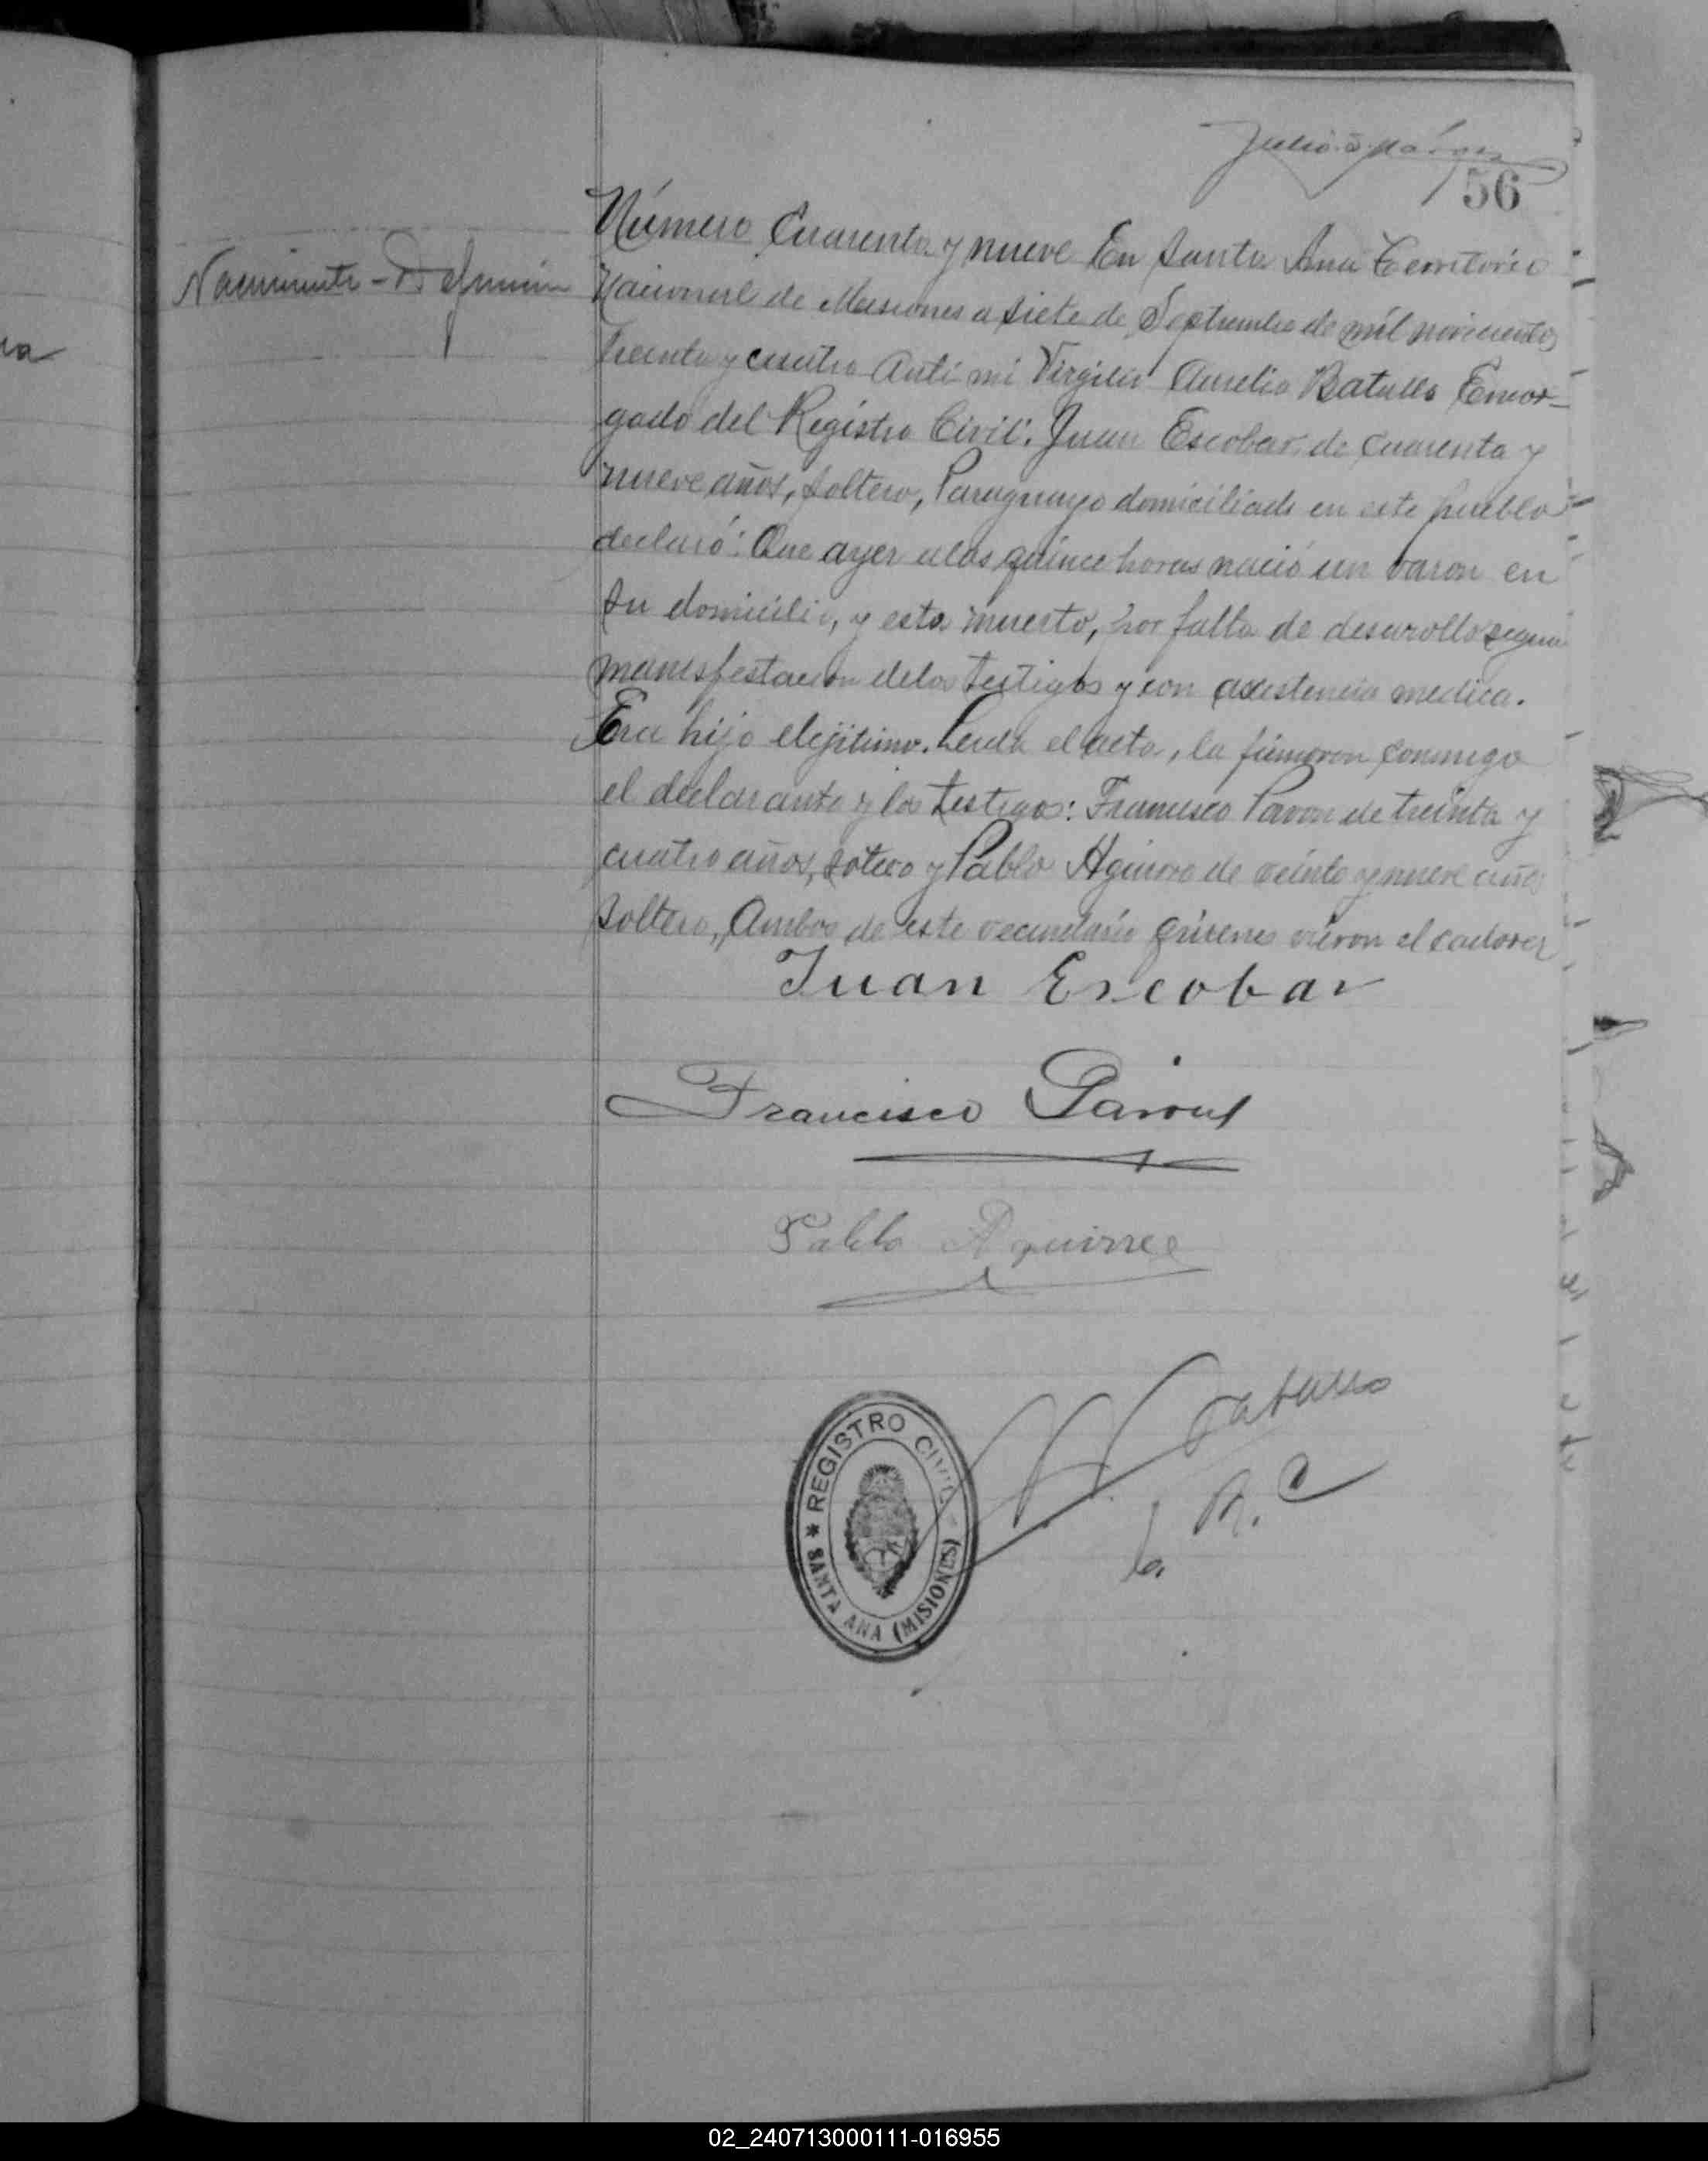 56
Número Cuarenta y nueve En Santa Ana Territorio
Nacional de Misiones a siete de Septiembre de mil novecientos
treinta y cuatro Ante mi Virgilio Aurelio Batulls Encar-
gado del Registro Civil. Juan Escobar de cuarenta y
nueve años, soltero, Paraguayo domiciliado en este pueblo
declaró: Que ayer a las quince horas nació un varon en
su domicilio, y esta muerto, por falta de desarollo segun
manisfestacion de los testigos y con asistencia medica.
Era hijo elejitimo. Leida el acta, la firmaron conmigo
el declarante y los testigos: Francisco Pavon de treinta y
cuatro años, sotero y Pablo Aguirre de veinte y nueve años
soltero, Ambos de este vecindario quienes vieron el cadaver
Nacimiento - Defunción
Juan Escobar
Francisco Pavon
Pablo Aguirre
R. C
REGISTRO CIVIL
SANTA ANA (MISIONES)
02_240713000111-016955